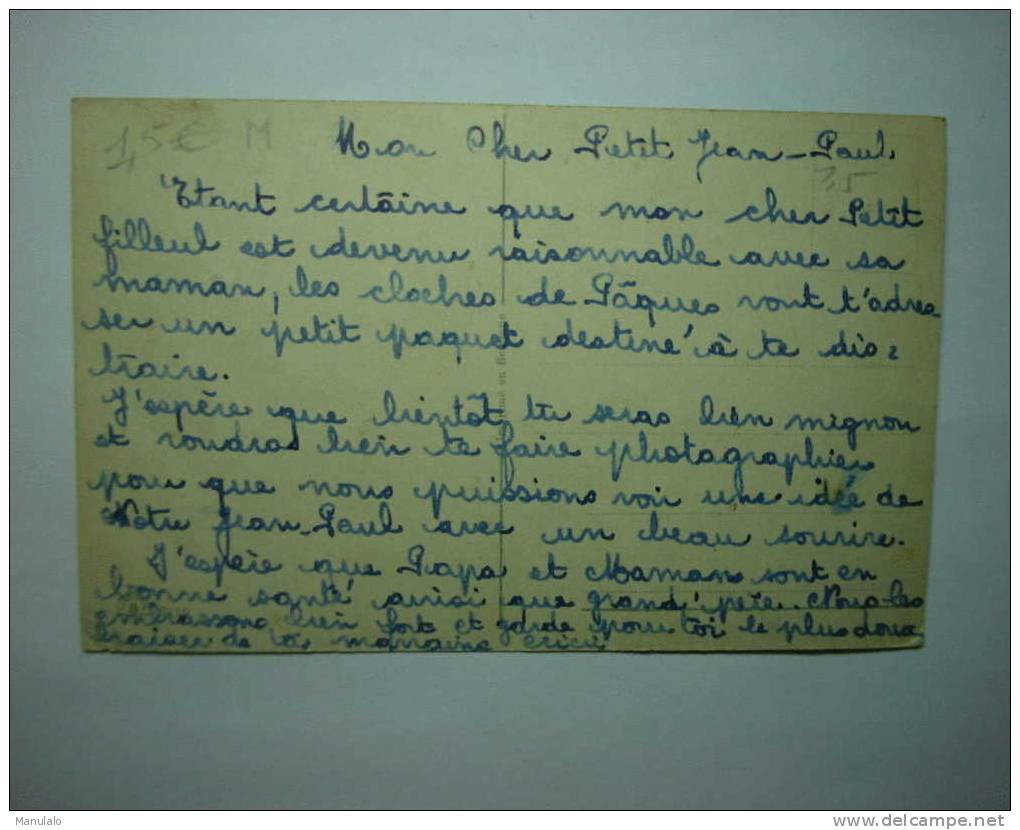 1,5€ M
Mon Cher Petit Jean-Paul
7,5
Etant certaine que mon cher Petit
filleul est devenu raisonnable avec sa
maman, les cloches de Pâques vont t'adres-
ser un petit paquet destiné à te dis=
traire.
J'espère que bientôt tu seras bien mignon
et voudras bien te faire photographier
pour que nous puissions voir une idée de
Notre Jean-Paul avec un beau sourire.
J'espère que Papa et Maman sont en
bonne santé ainsi que grand'père. Nous les
embrassons bien fort et garde pour toi le plus doux
baiser de ta marraine
Manulalo
www.delcampe.net